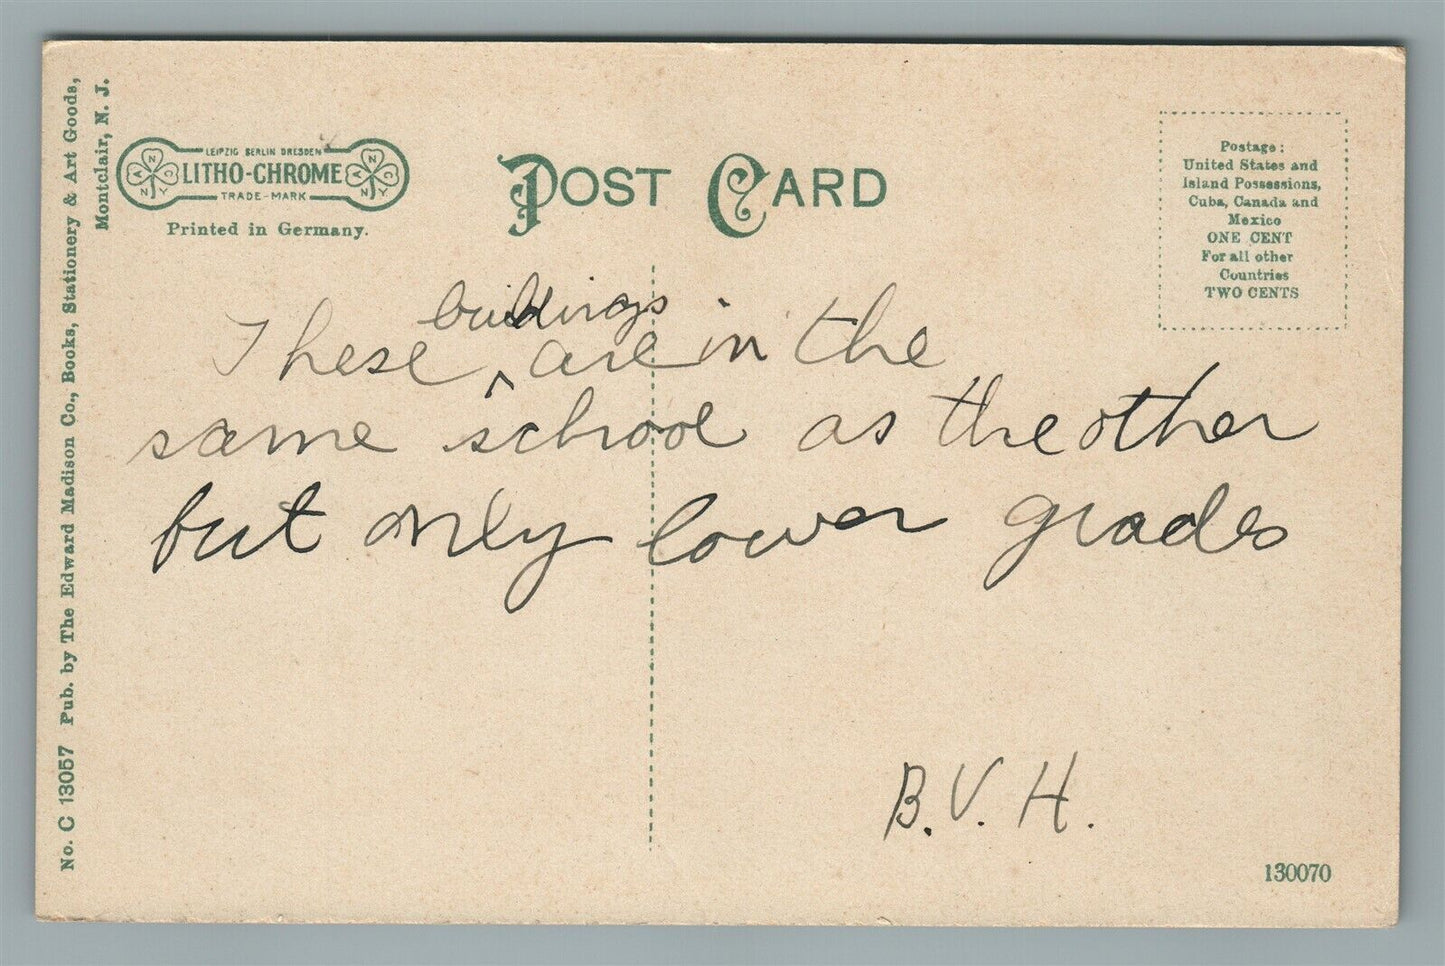 No. C 13057 Pub. by The Edward Madison Co., Books, Stationery & Art Goods,
Montclair, N. J.
LEIPZIG BERLIN DRESDEN
LITHO-CHROME
TRADE-MARK
N
A C
N Y
Printed in Germany.
POST CARD
Postage:
United States and
Island Possessions,
Cuba, Canada and
Mexico
ONE CENT
For all other
Countries
TWO CENTS
buildings
These ^ are in the
same school as the other
but only lower grades
B. V. H.
130070